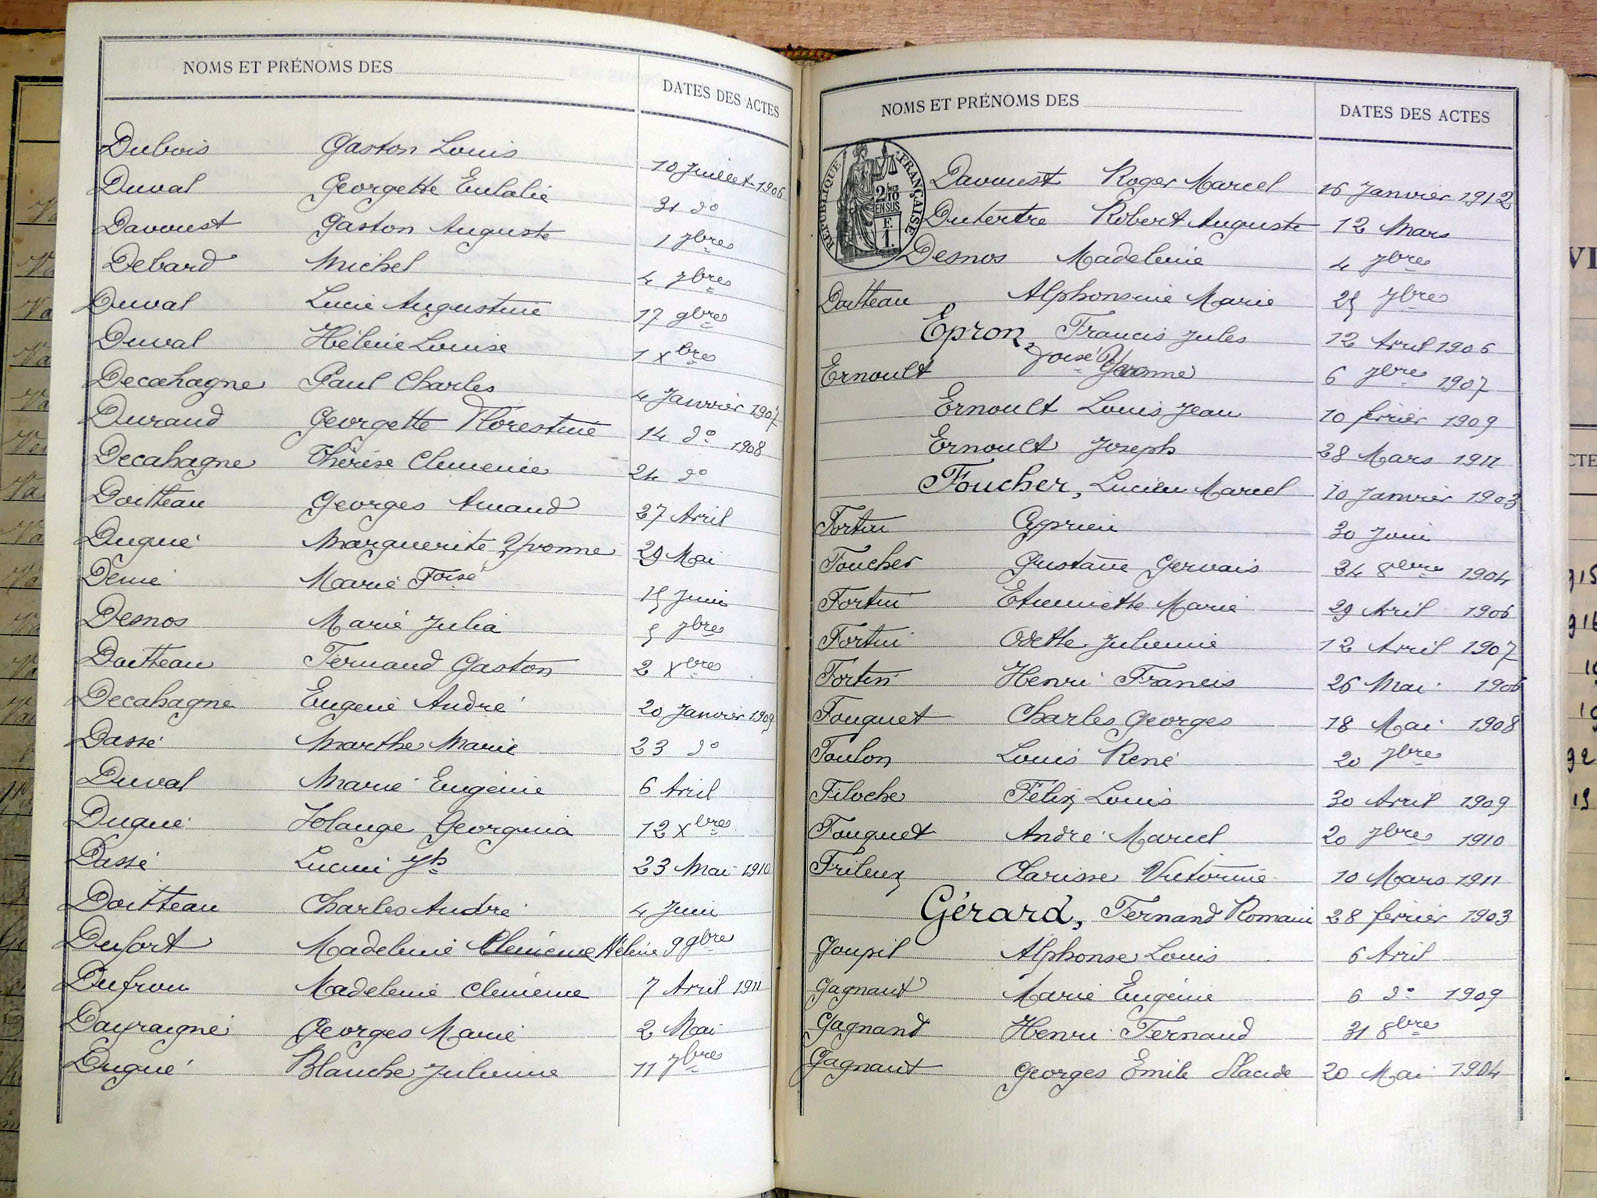 NOMS ET PRÉNOMS DES
DATES DES ACTES
Dubois Gaston Louis 10 Juillet 1906
Duval Georgette Eulalie 31 do
Davoust Gaston Auguste 1 7bres
Debard Michel 4 7bres
Duval Lucie Augustine 17 9bres
Duval Hélène Louise 1 Xbres
Decahagne Paul Charles 4 Janvier 1907
Durand Georgette Florestine 14 do 1908
Decahagne Thérèse Clemence 24 do
Doitteau Georges Amand 27 Avril
Dugué Marguerite Yvonne 29 Mai
Denié Marie 15 Juin
Desnos Marie Julia 5 7bres
Doitteau Fernand Gaston 2 Xbres
Decahagne Eugène André 20 Janvier 1909
Dassé Marthe Marie 23 do
Duval Marie Eugénie 6 Avril
Dugué Yolange Georgina 12 Xbres
Dassé Lucien Jh 23 Mai 1910
Doitteau Charles André 4 Juin
Dufort Madeleine Clémence Hélène 9 9bre
Dufrou Madeleine Clémence 7 Avril 1911
Dayraigne Georges Marie 2 Mai
Dugué Blanche Julienne 11 7bres
NOMS ET PRÉNOMS DES
DATES DES ACTES
RÉPUBLIQUE FRANÇAISE
2/10 EN SUS
E.
1.
Davoust Roger Marcel 16 Janvier 1912
Dutertre Robert Auguste 12 Mars
Desnos Madeleine 4 7bres
Doitteau Alphonsine Marie 25 7bres
Epron, Francis Jules 12 Avril 1906
Ernoult Yvonne 6 7bre 1907
Ernoult Louis Jean 10 février 1909
Ernoult Joseph 28 Mars 1911
Foucher, Lucien Marcel 10 Janvier 1903
Fortin Cyprien 30 Juin
Foucher Gustave Gervais 8bre 1904
Fortin Etiennette Marie 29 Avril 1906
Fortin Odette Julienne 12 Avril 1907
Fortin Henri Francis 26 Mai
Fouquet Charles Georges 18 Mai 1908
Foulon Louis René 20 7bre
Filoche Félix Louis 30 Avril 1909
Fouquet André Marcel 20 7bres 1910
Frileux Clarisse Victorine 10 Mars 1911
Gérard, Fernand Romain 28 février 1903
Goupil Alphonse Louis 6 Avril
Gagnaux Marie Eugénie 6 do 1909
Gagnand Henri Fernand 31 8bre
Gagnant Georges Emile Placide 20 Mai 1904